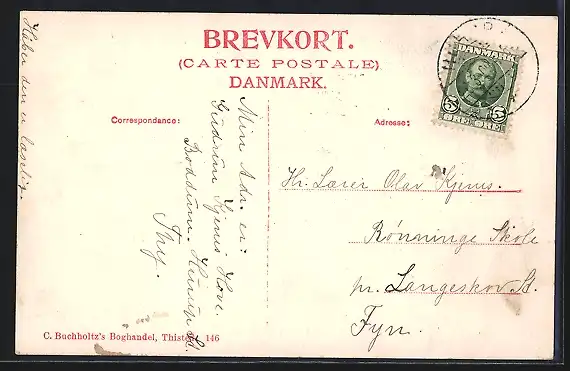 BREVKORT.
(CARTE POSTALE)
DANMARK.
Correspondance:
Adresse:
DANMARK
5 5
Haaber den er læselig.
Min Adr. er:
Gudrun Kjems Hove
Boddum. Hurup St.
Thy.
Hr. Lærer Olav Kjems.
Rønninge Skole
pr. Langeskov St.
Fyn.
C. Buchholtz's Boghandel, Thisted. 146